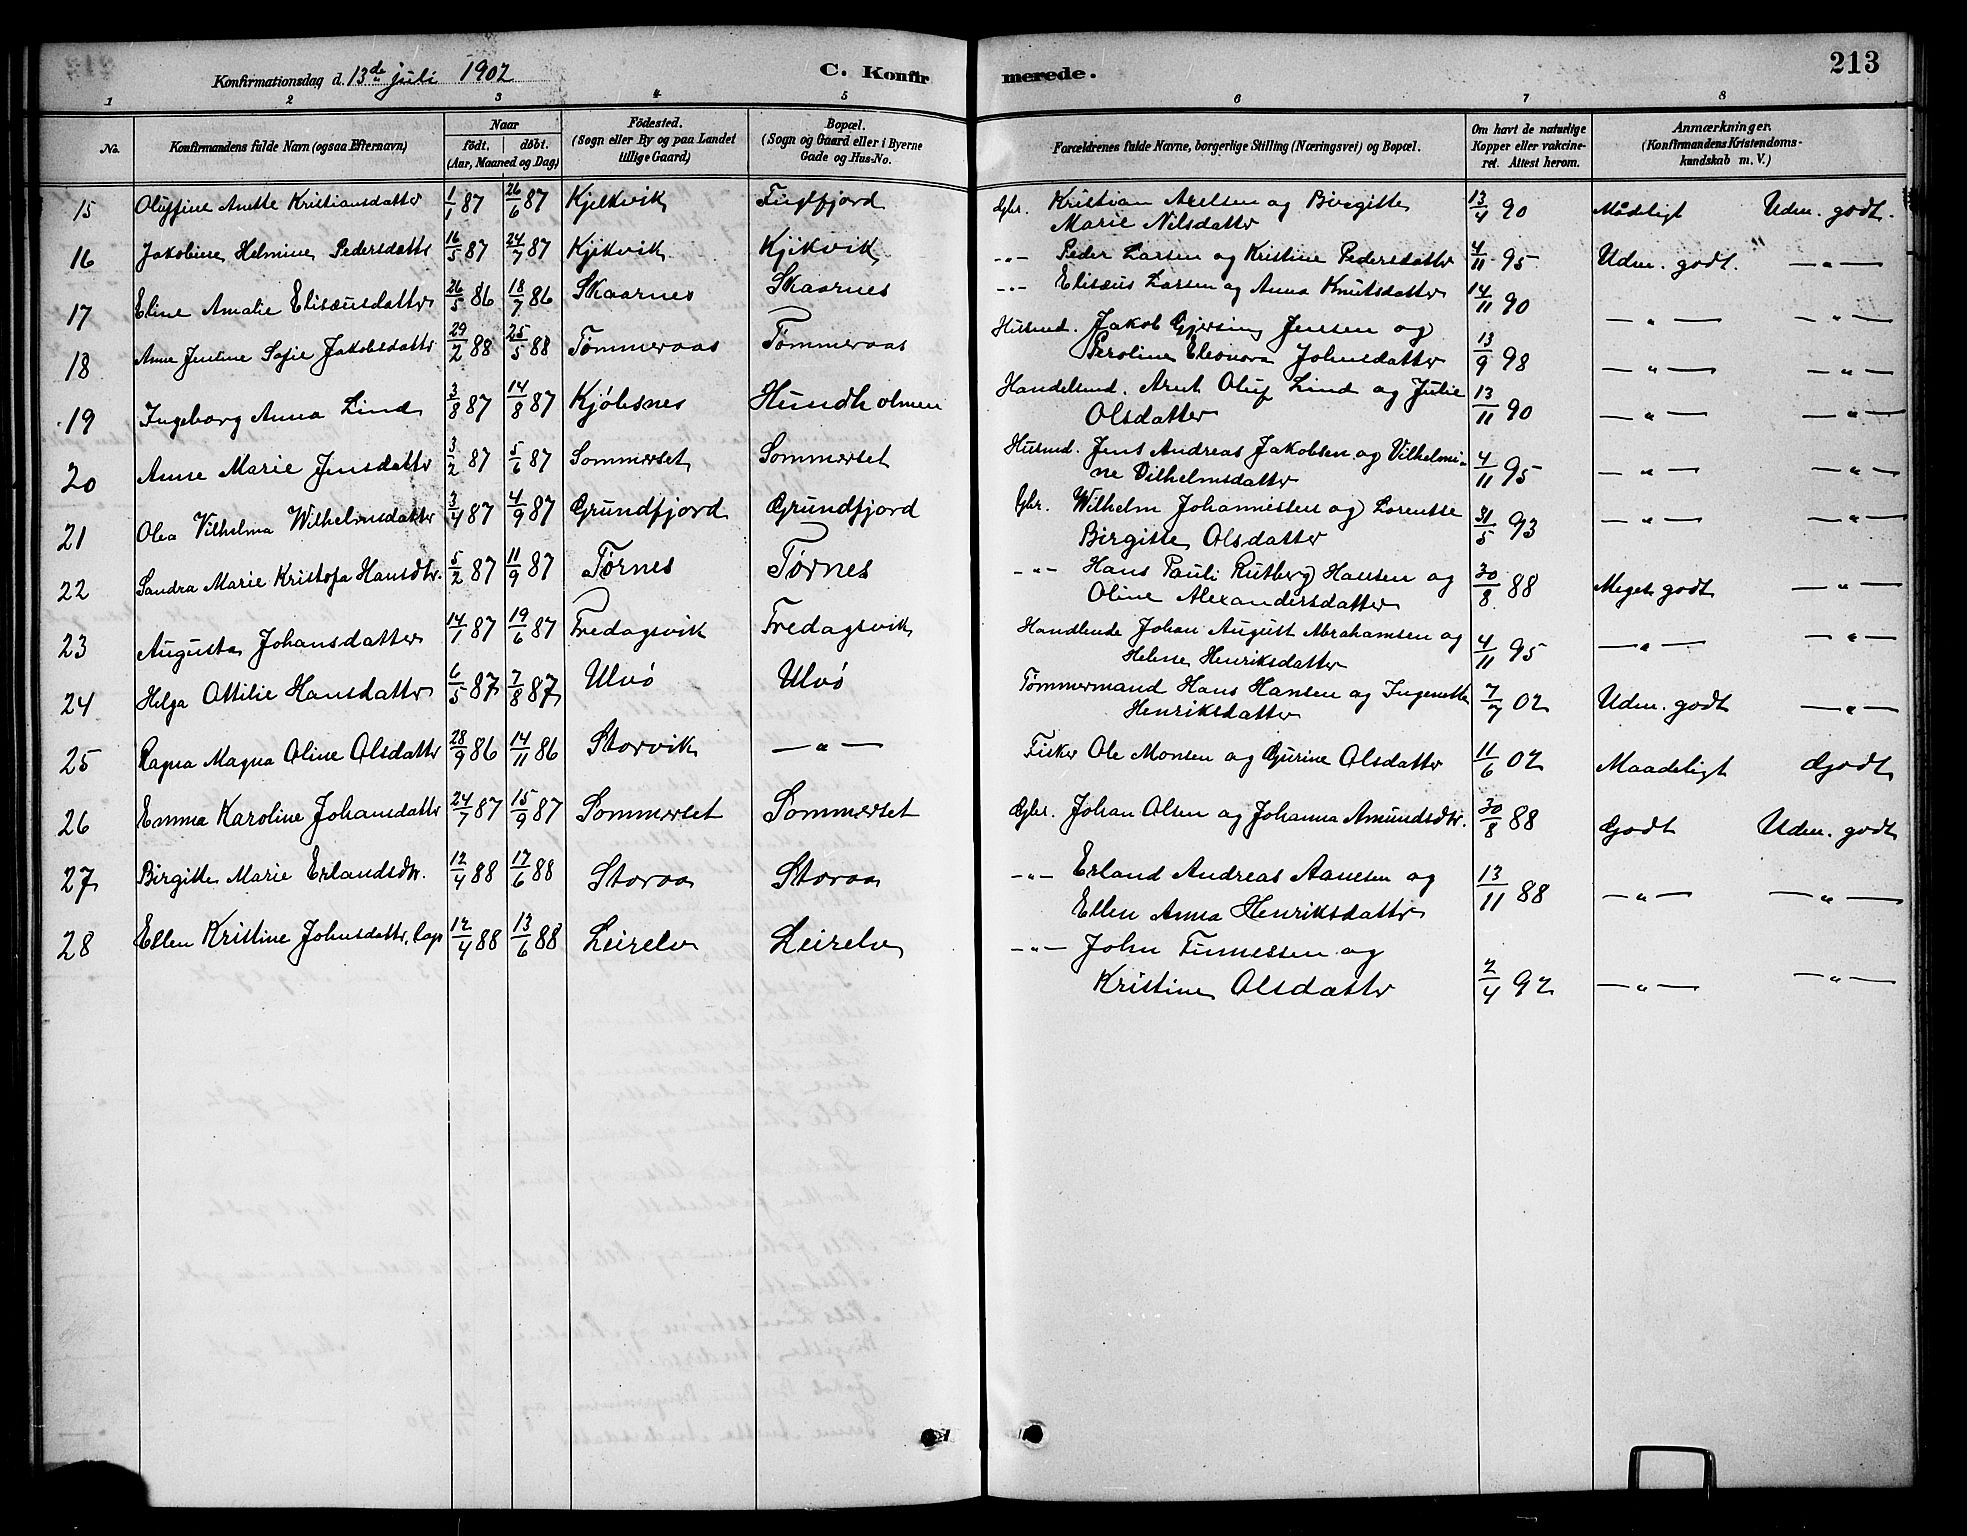 Konfirmationsdag d. 13de juli 1902 C. Konfir merede. 213
1 2 3 4 5 6 7 8
No. Konfirmandens fulde Navn (ogsaa Efternavn) Naar født, døbt. (Aar, Maaned og Dag) Fødested. (Sogn eller By og paa Landet tillige Gaard) Bopæl. (Sogn og Gaard eller i Byerne Gade og Hus-No. Forældrenes fulde Navne, borgerlige Stilling (Næringsvei) og Bopæl. Om havt de naturlige Kopper eller vakcineret. Attest herom. Anmærkninger. (Konfirmandens Kristendomskundskab m. V.)
15 Oluffine Anette Kristiansdatter 1/1 87 26/6 87 Kjelkvik Fuglfjord Gbr. Kristian Axelsen og Birgitte
Marie Nilsdatter 13/4 90 Mådligt Udm. godt.
16 Jakobine Helmine Pedersdattr 16/5 87 24/7 87 Kjikvik Kjikvik —"— Peder Larsen og Kristine Pedersdatter 4/11 95 Udm. godt. —"—
17 Eline Amalie Elisæusdatter 26/5 86 18/7 86 Skaarnes Skaarnes —"— Elisæus Larsen og Anna Knutsdatter 14/11 90 —"— —"—
18 Anne Jentine Sofie Jakobsdattr 29/2 88 25/5 88 Tømmeraas Tømmeraas Husmd. Jakob Gjersing Jensen og
Peroline Eleonora Johnsdatter 13/9 98 —"— —"—
19 Ingeborg Anna Lind 3/8 87 14/8 87 Kjöbsnes Hundholmen Handelsmd. Arnt Oluf Lind og Julie
Olsdatter 13/11 90 —"— —"—
20 Anne Marie Jensdattr 3/2 87 5/6 87 Sommerset Sommerset Husmd. Jens Andreas Jakobsen og Vilhelmi-
ne Vilhelmsdatter 4/11 95 —"— —"—
21 Olea Vilhelma Wilhelmsdatter 3/4 87 4/9 87 Grundfjord Grundfjord Gbr. Wilhelm Johannessen og Lorentse
Birgitte Olsdatter 31/5 93 —"— —"—
22 Sandra Marie Kristofa Hansdtr. 5/2 87 11/9 87 Tørnes Tørnes —"— Hans Pauli Rutberg Hansen og
Oline Alexandersdatter 30/8 88 Meget godt —"—
23 Augusta Johansdatter 14/1 87 19/6 87 Fredagsvik Fredagsvik Handlende Johan August Abrahamsen og
Helene Henriksdatter 4/11 95 —"— —"—
24 Helga Ottilie Hansdatter 6/5 87 7/8 87 Ulvö Ulvö Tømmermand Hans Hansen og Ingenette
Henriksdatter 7/7 02 Udm. godt —"—
25 Ragna Magna Oline Olsdatter 28/9 86 14/11 86 Storvik —"— Fisker Ole Monsen og Gurine Olsdatter 11/6 02 Maadeligt Godt
26 Emma Karoline Johansdattr 24/7 87 15/9 87 Sommerset Sommerset Gbr. Johan Olsen og Johanna Amundsdtr. 30/8 88 Godt Udm. godt
27 Birgitte Marie Erlandsdtr. 12/4 88 17/6 88 Storaa Storaa —"— Erland Andreas Aanesen og
Ellen Anna Henriksdatter 13/11 88 —"— —"—
28 Ellen Kristine Johnsdattr, Lap 12/4 88 13/6 88 Leirelv Leirelv —"— John Finnessen og
Kristine Olsdatter 2/4 92 —"— —"—